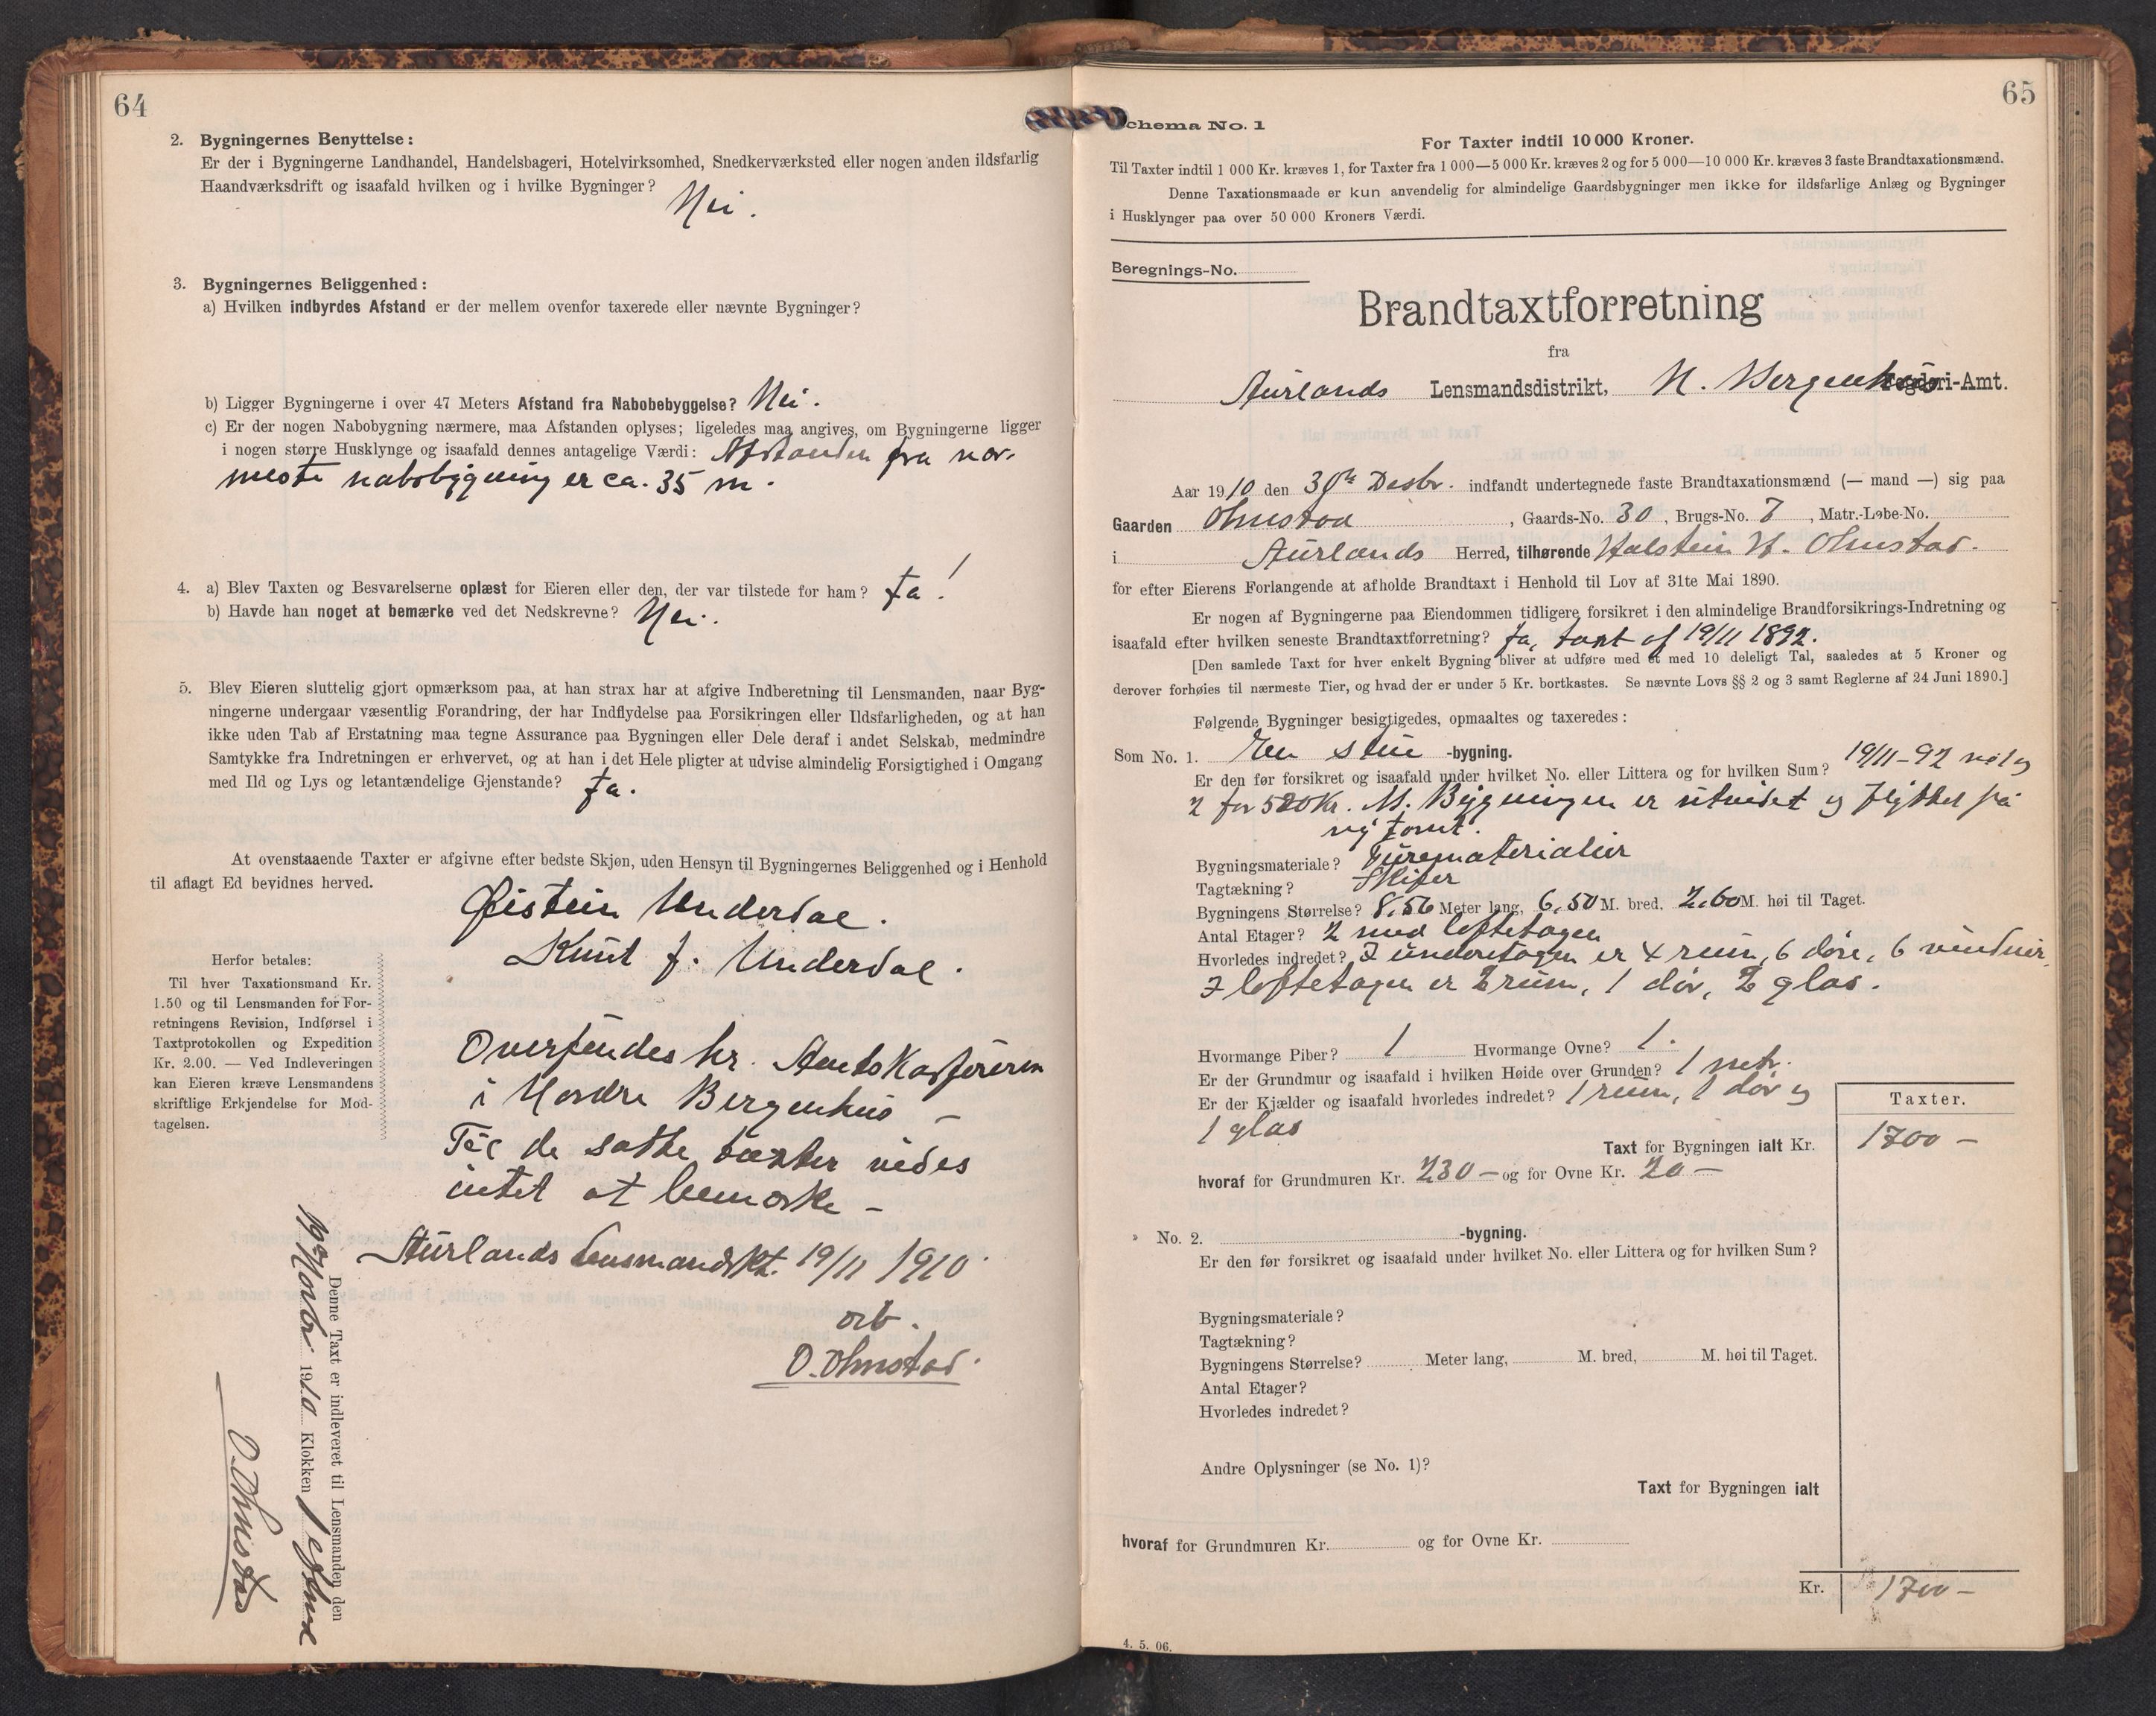 64
2. Bygningernes Benyttelse:
Er der i Bygningerne Landhandel, Handelsbageri, Hotelvirksomhed, Snedkerværksted eller nogen anden ildsfarlig
Haandværksdrift og isaafald hvilken og i hvilke Bygninger?
Nei.
3. Bygningernes Beliggenhed:
a) Hvilken indbyrdes Afstand er der mellem ovenfor taxerede eller nævnte Bygninger?
b) Ligger Bygningerne i over 47 Meters Afstand fra Nabobebyggelse? Nei.
c) Er der nogen Nabobygning nærmere, maa Afstanden oplyses; ligeledes maa angives, om Bygningerne ligger
i nogen større Husklynge og isaafald dennes antagelige Værdi: Afstanden fra nær-
meste nabobygning er ca. 35 m.
4. a) Blev Taxten og Besvarelserne oplæst for Eieren eller den, der var tilstede for ham? Ja!
b) Havde han noget at bemærke ved det Nedskrevne? Nei.
5. Blev Eieren sluttelig gjort opmærksom paa, at han strax har at afgive Indberetning til Lensmanden, naar Byg-
ningerne undergaar væsentlig Forandring, der har Indflydelse paa Forsikringen eller Ildsfarligheden, og at han
ikke uden Tab af Erstatning maa tegne Assurance paa Bygningen eller Dele deraf i andet Selskab, medmindre
Samtykke fra Indretningen er erhvervet, og at han i det Hele pligter at udvise almindelig Forsigtighed i Omgang
med Ild og Lys og letantændelige Gjenstande? Ja.
At ovenstaaende Taxter er afgivne efter bedste Skjøn, uden Hensyn til Bygningernes Beliggenhed og i Henhold
til aflagt Ed bevidnes herved.
Øistein Underdal.
Knut J. Underdal.
Herfor betales:
Til hver Taxationsmand Kr.
1.50 og til Lensmanden for For-
retningens Revision, Indførsel i
Taxtprotokollen og Expedition
Kr. 2.00. — Ved Indleveringen
kan Eieren kræve Lensmandens
skriftlige Erkjendelse for Mod-
tagelsen.
Oversendes hr. Amtskasserern
i Nordre Bergenhus —
Til de satte taxter vides
intet at bemerke —
Aurlands Lensmandskt. 19/11 1910
O. Ohnstad.
Denne Taxt er indleveret til Lensmanden den
19de Novbr 1910 Klokken 1
O. Ohnstad
65
Schema No. 1
For Taxter indtil 10 000 Kroner.
Til Taxter indtil 1 000 Kr. kræves 1, for Taxter fra 1 000—5 000 Kr. kræves 2 og for 5 000—10 000 Kr. kræves 3 faste Brandtaxationsmænd.
Denne Taxationsmaade er kun anvendelig for almindelige Gaardsbygninger men ikke for ildsfarlige Anlæg og Bygninger
i Husklynger paa over 50 000 Kroners Værdi.
Beregnings-No.
Brandtaxtforretning
fra
Aurlands Lensmandsdistrikt, N. Bergenhus Fogderi-Amt.
Aar 1910 den Desbr. indfandt undertegnede faste Brandtaxationsmænd (— mand —) sig paa
Gaarden Ohnstad, Gaards-No. 30, Brugs-No. 7, Matr.-Løbe-No.
i Aurlands Herred, tilhørende Halstein H. Ohnstad.
for efter Eierens Forlangende at afholde Brandtaxt i Henhold til Lov af 31te Mai 1890.
Er nogen af Bygningerne paa Eiendommen tidligere forsikret i den almindelige Brandforsikrings-Indretning og
isaafald efter hvilken seneste Brandtaxtforretning? Ja, taxt af 19/11 1892.
[Den samlede Taxt for hver enkelt Bygning bliver at udføre med et med 10 deleligt Tal, saaledes at 5 Kroner og
derover forhøies til nærmeste Tier, og hvad der er under 5 Kr. bortkastes. Se nævnte Lovs §§ 2 og 3 samt Reglerne af 24 Juni 1890.]
Følgende Bygninger besigtigedes, opmaaltes og taxeredes:
Som No. 1. En stue -bygning.
Er den før forsikret og isaafald under hvilket No. eller Littera og for hvilken Sum? 19/11-92 no 1 og
2 for 520 Kr. M. Bygningen er utvidet og flyttet på
ny tomt.
Bygningsmateriale? Furematerialier
Tagtækning? Skifer
Bygningens Størrelse? 8,56 Meter lang, 6,50 M. bred, 2,60 M. høi til Taget.
Antal Etager? 2 med loftetagen
Hvorledes indredet? I underetagen er 4 rum, 6 døre, 6 vinduer.
I loftetagen er 2 rum, 1 dør, 2 glas.
Hvormange Piber? 1 Hvormange Ovne? 1.
Er der Grundmur og isaafald i hvilken Høide over Grunden? 1 metr.
Er der Kjælder og isaafald hvorledes indredet? 1 rum, 1 dør og
1 glas
Taxter.
Taxt for Bygningen ialt Kr. 1700 —
hvoraf for Grundmuren Kr. 230 — og for Ovne Kr. 20 —
» No. 2. -bygning.
Er den før forsikret og isaafald under hvilket No. eller Littera og for hvilken Sum?
Bygningsmateriale?
Tagtækning?
Bygningens Størrelse? Meter lang, M. bred, M. høi til Taget.
Antal Etager?
Hvorledes indredet?
Andre Oplysninger (se No. 1)?
Taxt for Bygningen ialt
hvoraf for Grundmuren Kr. og for Ovne Kr.
Kr. 1700 —
4. 5. 06.